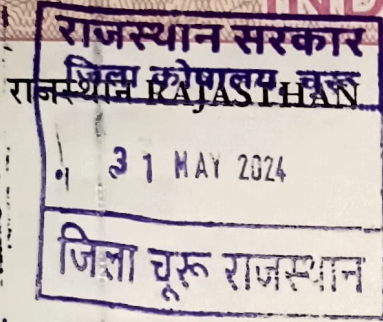 IND
राजस्थान सरकार
जिला कोषालय, चूरू
राजस्थान RAJASTHAN
31 MAY 2024
जिला चूरू राजस्थान